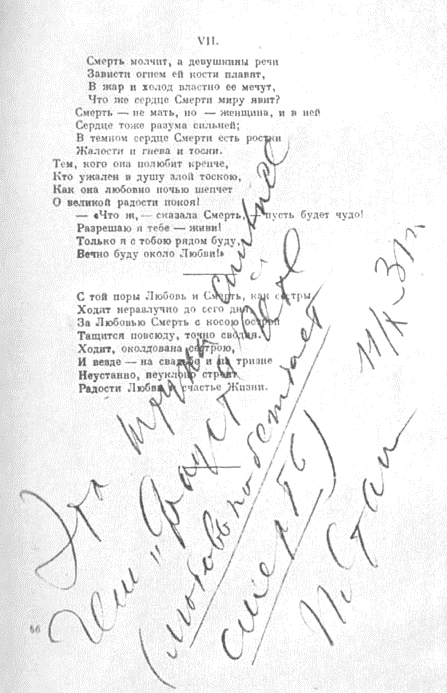 VII.
Смерть молчит, а девушкины речи
Зависти огнем ей кости плавят,
В жар и холод властно ее мечут,
Что же сердце Смерти миру явит?
Смерть — не мать, но — женщина, и в ней
Сердце тоже разума сильней;
В темном сердце Смерти есть ростки
Жалости и гнева и тоски.
Тем, кого она полюбит крепче,
Кто ужален в душу злой тоскою,
Как она любовно ночью шепчет
О великой радости покоя!
— «Что ж, — сказала Смерть, — пусть будет чудо!
Разрешаю я тебе — живи!
Только я с тобою рядом буду,
Вечно буду около Любви!»
С той поры Любовь и Смерть, как сестры,
Ходят неразлучно до сего дня,
За Любовью Смерть с косою острой
Тащится повсюду, точно сводня.
Ходит, околдована сестрою,
И везде — на свадьбе и на тризне
Неустанно, неуклонно строит
Радости Любви и счастье Жизни.
66
Эта штука сильнее
чем „Фауст" Гете
(любовь побеждает
смерть)
И. Стали
11/X–31 г.